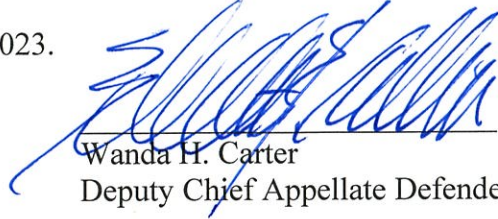 023.
Wanda H. Carter
Deputy Chief Appellate Defende